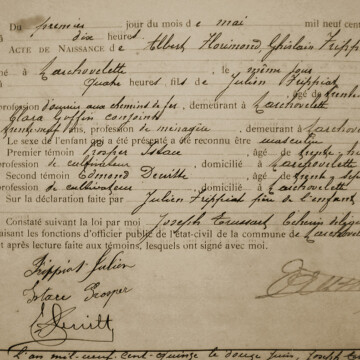 Du premier jour du mois de mai mil neuf cent
dix heures
ACTE DE NAISSANCE de Albert Florimond Ghislain Frippiat
né à Marchovelette, le même jour
quatre heures fils de Julien Frippiat,
âgé de trente
profession ouvrier aux chemins de fer, demeurant à Marchovelette
Clara Goffin conjointe
ans, profession de ménagère, demeurant à Marchove
Le sexe de l'enfant qui a été présenté a été reconnu être masculin
Premier témoin Prosper Istace, âgé de trente
profession de cultivateur, domicilié à Marchovelette
Second témoin Edmond Deville, âgé de trente sept
profession de cultivateur, domicilié à Marchovelette
Sur la déclaration faite par Julien Frippiat père de l'enfant
Constaté suivant la loi par moi Joseph Toussaint Echevin délégué
faisant les fonctions d'officier public de l'état-civil de la commune de Marchove
et après lecture faite aux témoins, lesquels ont signé avec moi.
Frippiat Julien
Istace Prosper
L'an mil neuf cent quinze le douze juin,